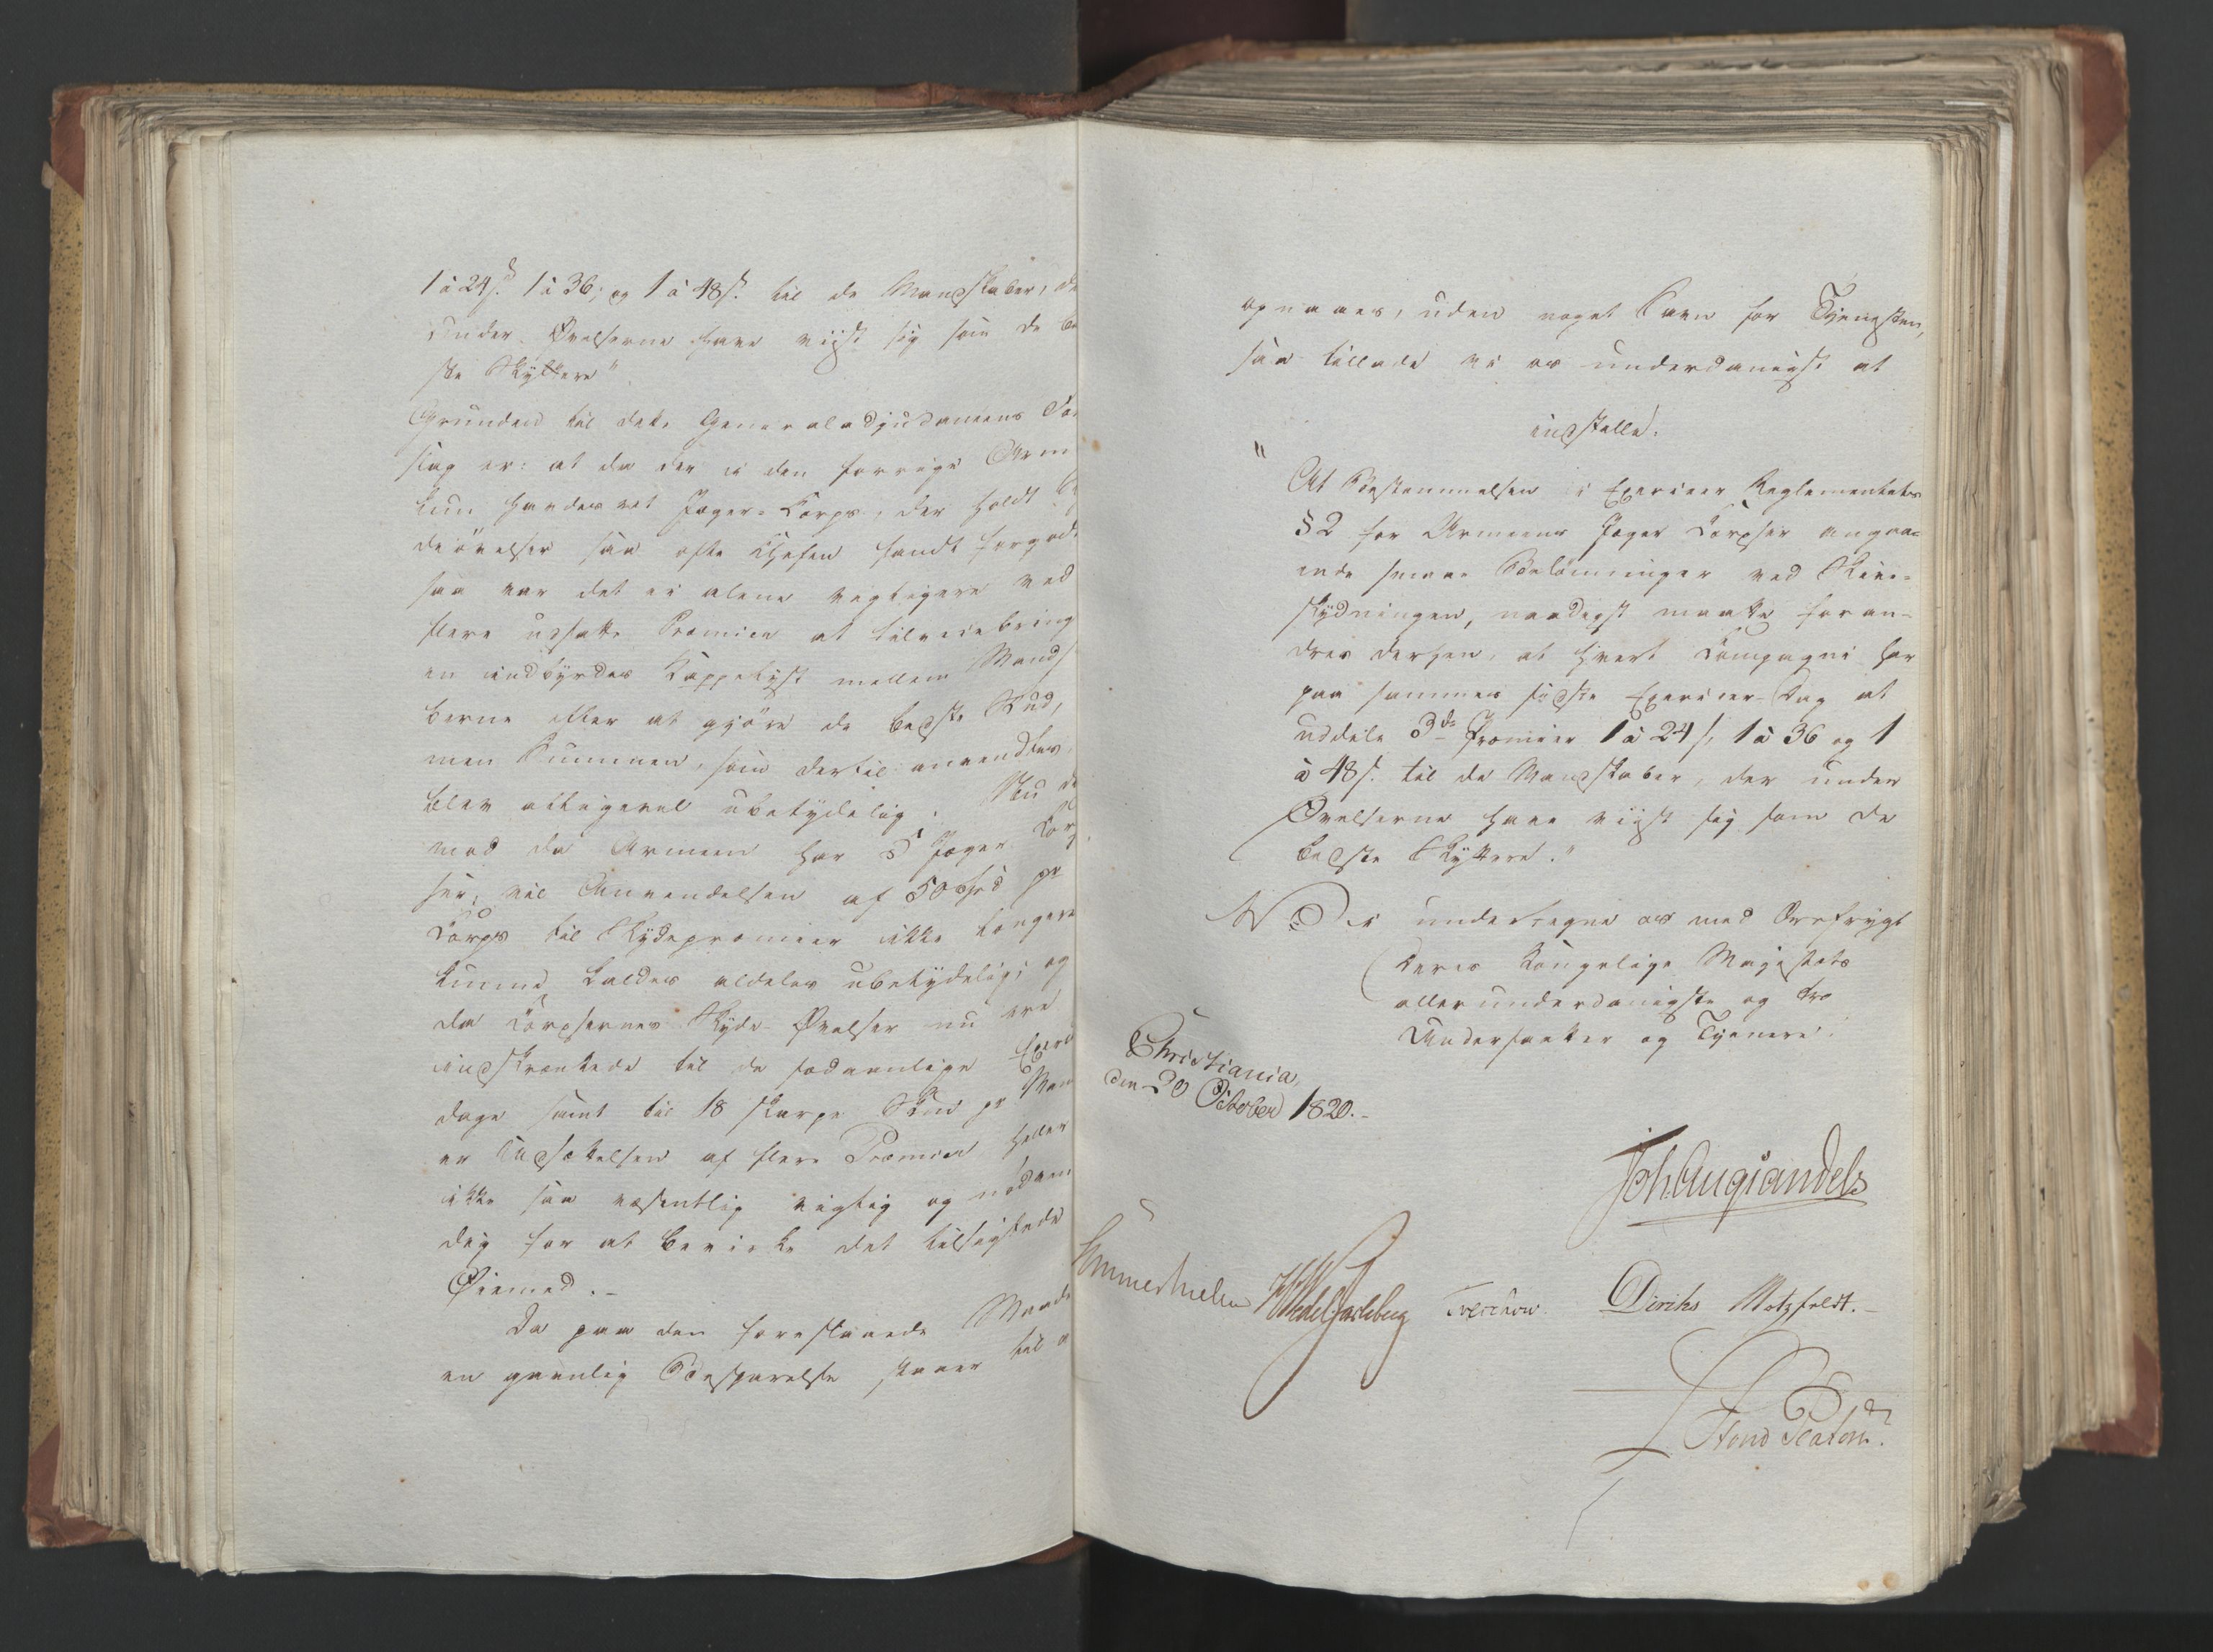 1 à 24 ſ. 1 à 36; og 1 à 48 ſ. til de Mandskaber, de
under Øvelserne have viist sig som de be
ste Skyttere".
Grunden til dette Generaladjudantens For
slag er: at da der i den forrige Arm
kun havdes et Jæger-Corps, der holdt
deøvelser saa ofte Chefen fandt forgodt
saa var det ei alene vigtigere ved
flere udsatte Præmier at tilveiebring
en indbyrdes Kappelyst mellem Mands
berne efter at gjøre de bedste Skud,
men Summen, som dertil anvendtes,
blev alligevel ubetydelig. Nu de
mod da Armeen har 5 Jæger Corp
ser, vil Anvendelsen af 50 pr
Corps til Skydepræmier ikke længere
kunne kaldes aldeles ubetydelig; og
da Corpsernes Skyde-Øvelser nu ere
indskrænkede til de sædvanlige Exeri
dage samt til 18 skarpe Skud pr Man
er Udsættelsen af flere Præmier heller
ikke saa væsentlig vigtig og nødven
dig for at bevirke det tilsigtede
Øiemed.-
Da paa den foreslaaede Maade
en gavnlig Besparelse staaer til a
opnaaes, uden noget Savn for Tjenesten,
saa tillade vi os underdanigst at
indstille:
"At Bestemmelsen i Exerceer Reglementets
§ 2 for Armeens Jæger Corpser angaa-
ende smaae Belønninger ved Skive-
skydningen, naadigst maatte foran-
dres derhen, at hvert Compagni har
paa sammes sidste Exerceer-Dag at
uddele 3de Præmier 1 à 24 ſ, 1 à 36 og 1
à 48 ſ. til de Mandskaber, der under
Øvelserne have viist sig som de
bedste Skyttere."
Vi undertegne os med Ærefrygt
Deres Kongelige Majestæts
allerunderdanigste og tro
Undersaatter og Tjenere.
Christiania,
den 20 October 1820.-
Joh. Aug Sandels
Sommerhielm Wedel Jarlsberg Treschow. Diriks Motzfeldt.-